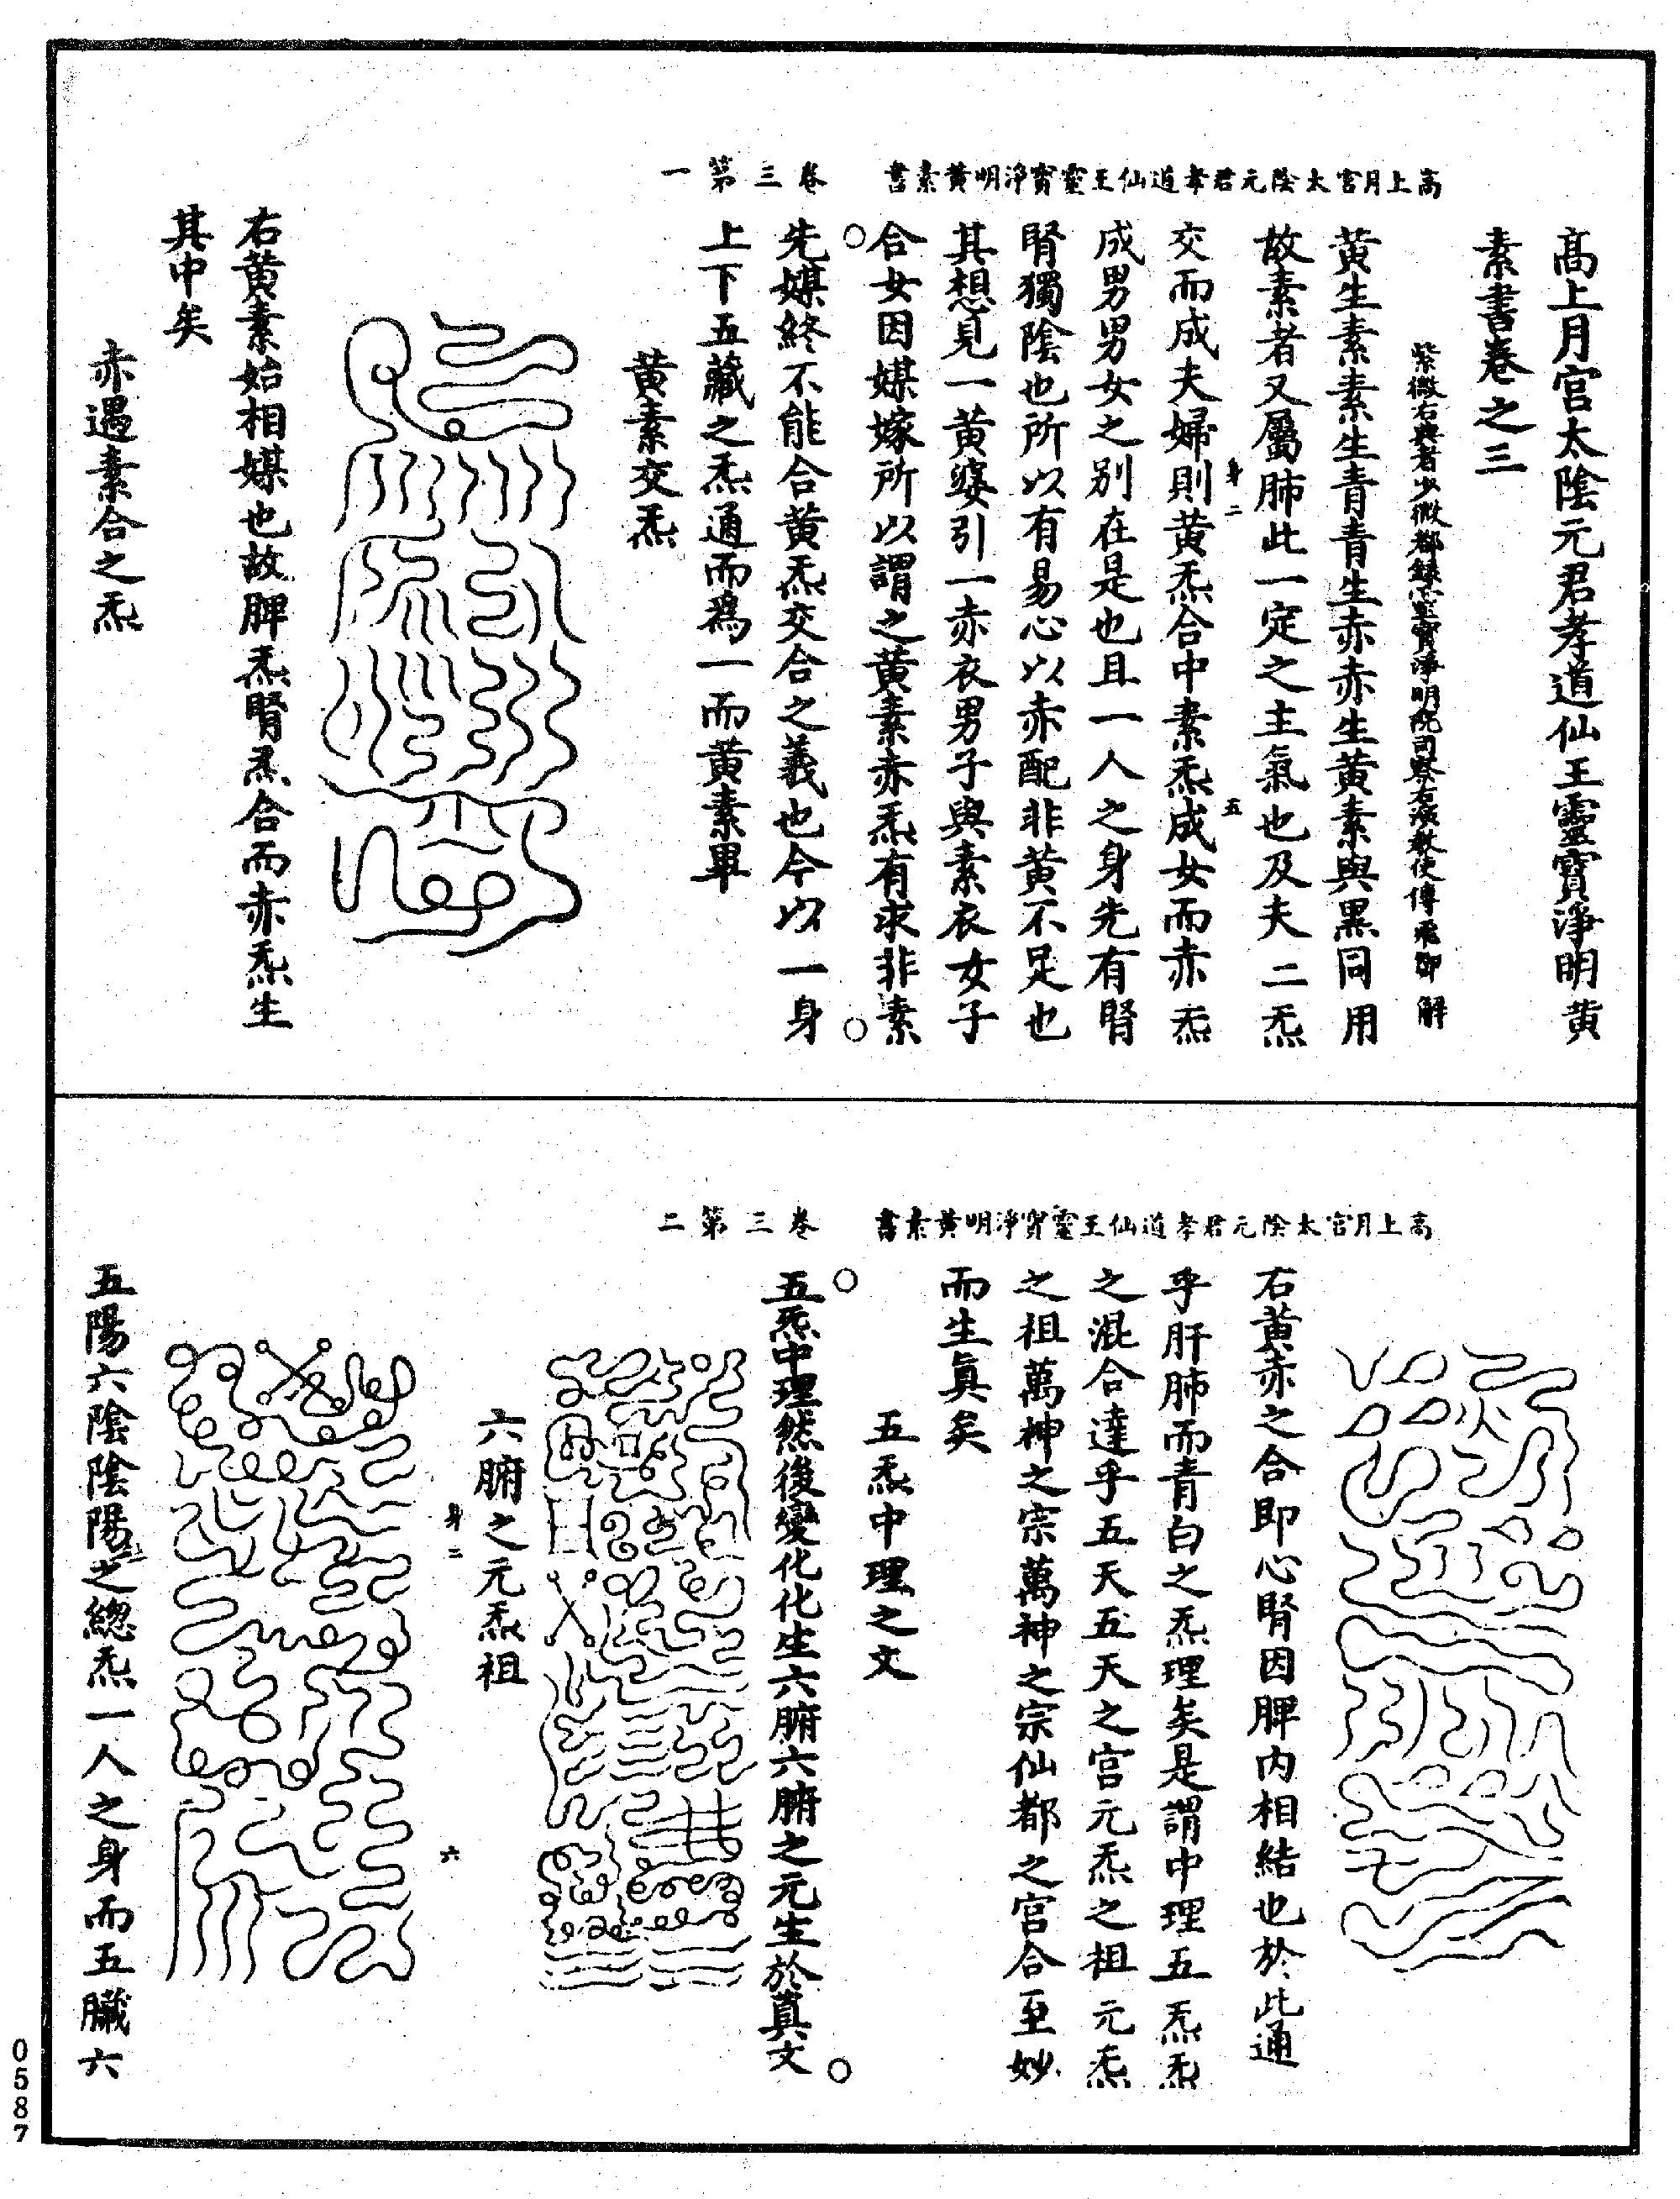 高上月宮太陰元君孝道仙王靈寶淨明黃素書　卷三第一
高上月宮太陰元君孝道仙王靈寶淨明黃
素書卷之三
紫微右典者少微都錄靈寶淨明院司察右演教使傅飛卿解
黃生素素生青青生赤赤生黃素與黑同用
故素者又屬肺此一定之主氣也及夫二炁
交而成夫婦則黃炁合中素炁成女而赤炁
成男男女之别在是也且一人之身先有腎
腎獨陰也所以有易心以赤配非黃不足也
其想見一黃婆引一赤衣男子與素衣女子
合女因媒嫁所以謂之黃素赤炁有求非素
先媒終不能合黃炁交合之義也今以一身
上下五藏之炁通而爲一而黃素畢
黃素交炁
右黃素始相媒也故脾炁腎炁合而赤炁生
其中矣
赤遇素合之炁
身二
五
高上月宮太陰元君孝道仙王靈寶淨明黃素書　卷三第二
右黃赤之合即心腎因脾内相結也於此通
乎肝肺而青白之炁理矣是謂中理五炁炁
之混合達乎五天五天之宮元炁之祖元炁
之祖萬神之宗萬神之宗仙都之宮合至妙
而生真矣
五炁中理之文
五炁中理然後變化化生六腑六腑之元生於真文
六腑之元炁祖
身二
六
五陽六陰陰陽之總炁一人之身而五臟六
0587